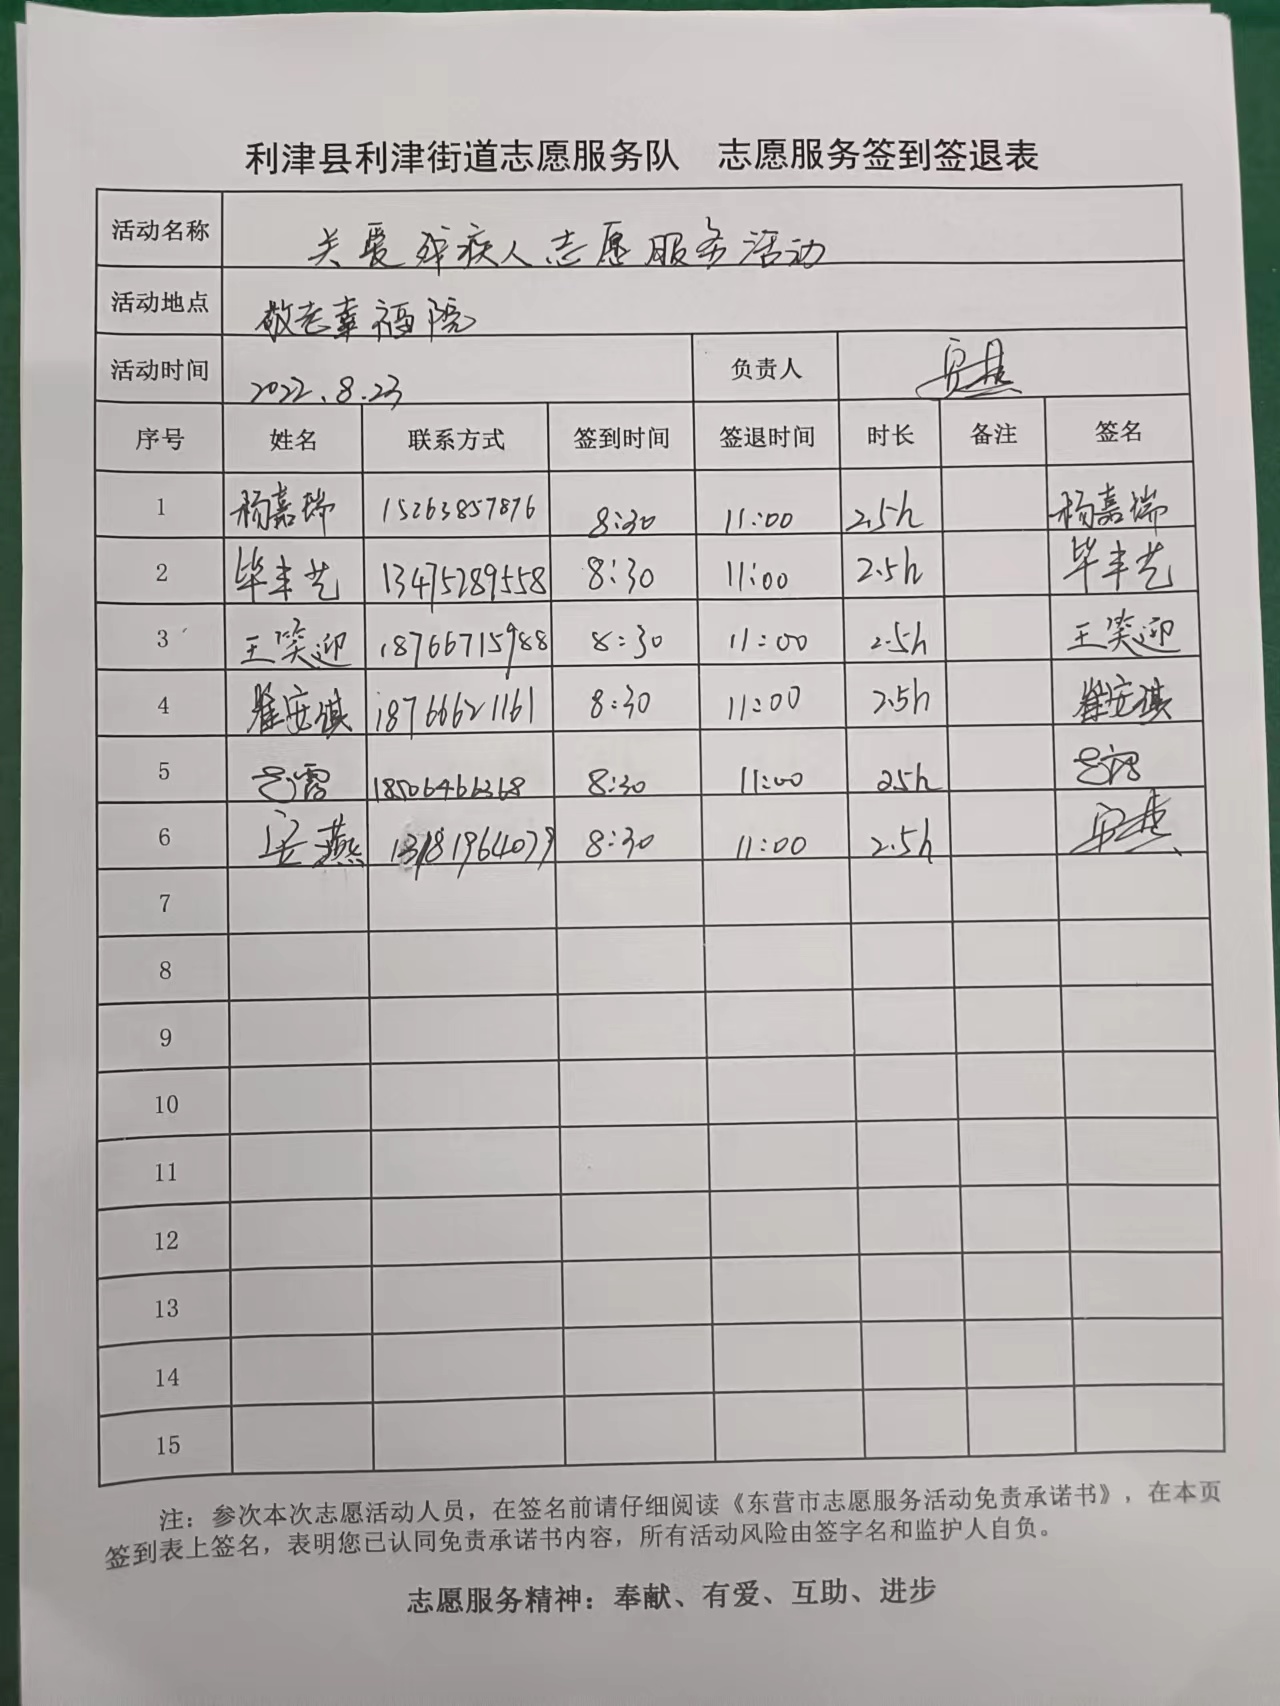 利津县利津街道志愿服务队 志愿服务签到签退表
活动名称 关爱残疾人志愿服务活动
活动地点 敬老幸福院
活动时间 2022.8.23 负责人 安燕
序号 姓名 联系方式 签到时间 签退时间 时长 备注 签名
1 杨嘉瑞 15263857876 8:30 11:00 2.5h 杨嘉瑞
2 毕丰艺 13475289558 8:30 11:00 2.5h 毕丰艺
3 王笑迎 18766715988 8:30 11:00 2.5h 王笑迎
4 崔安琪 18766621161 8:30 11:00 2.5h 崔安琪
5 8:30 11:00 2.5h
6 安燕 8:30 11:00 2.5h 安燕
7
8
9
10
11
12
13
14
15
注：参次本次志愿活动人员，在签名前请仔细阅读《东营市志愿服务活动免责承诺书》，在本页
签到表上签名，表明您已认同免责承诺书内容，所有活动风险由签字名和监护人自负。
志愿服务精神：奉献、有爱、互助、进步